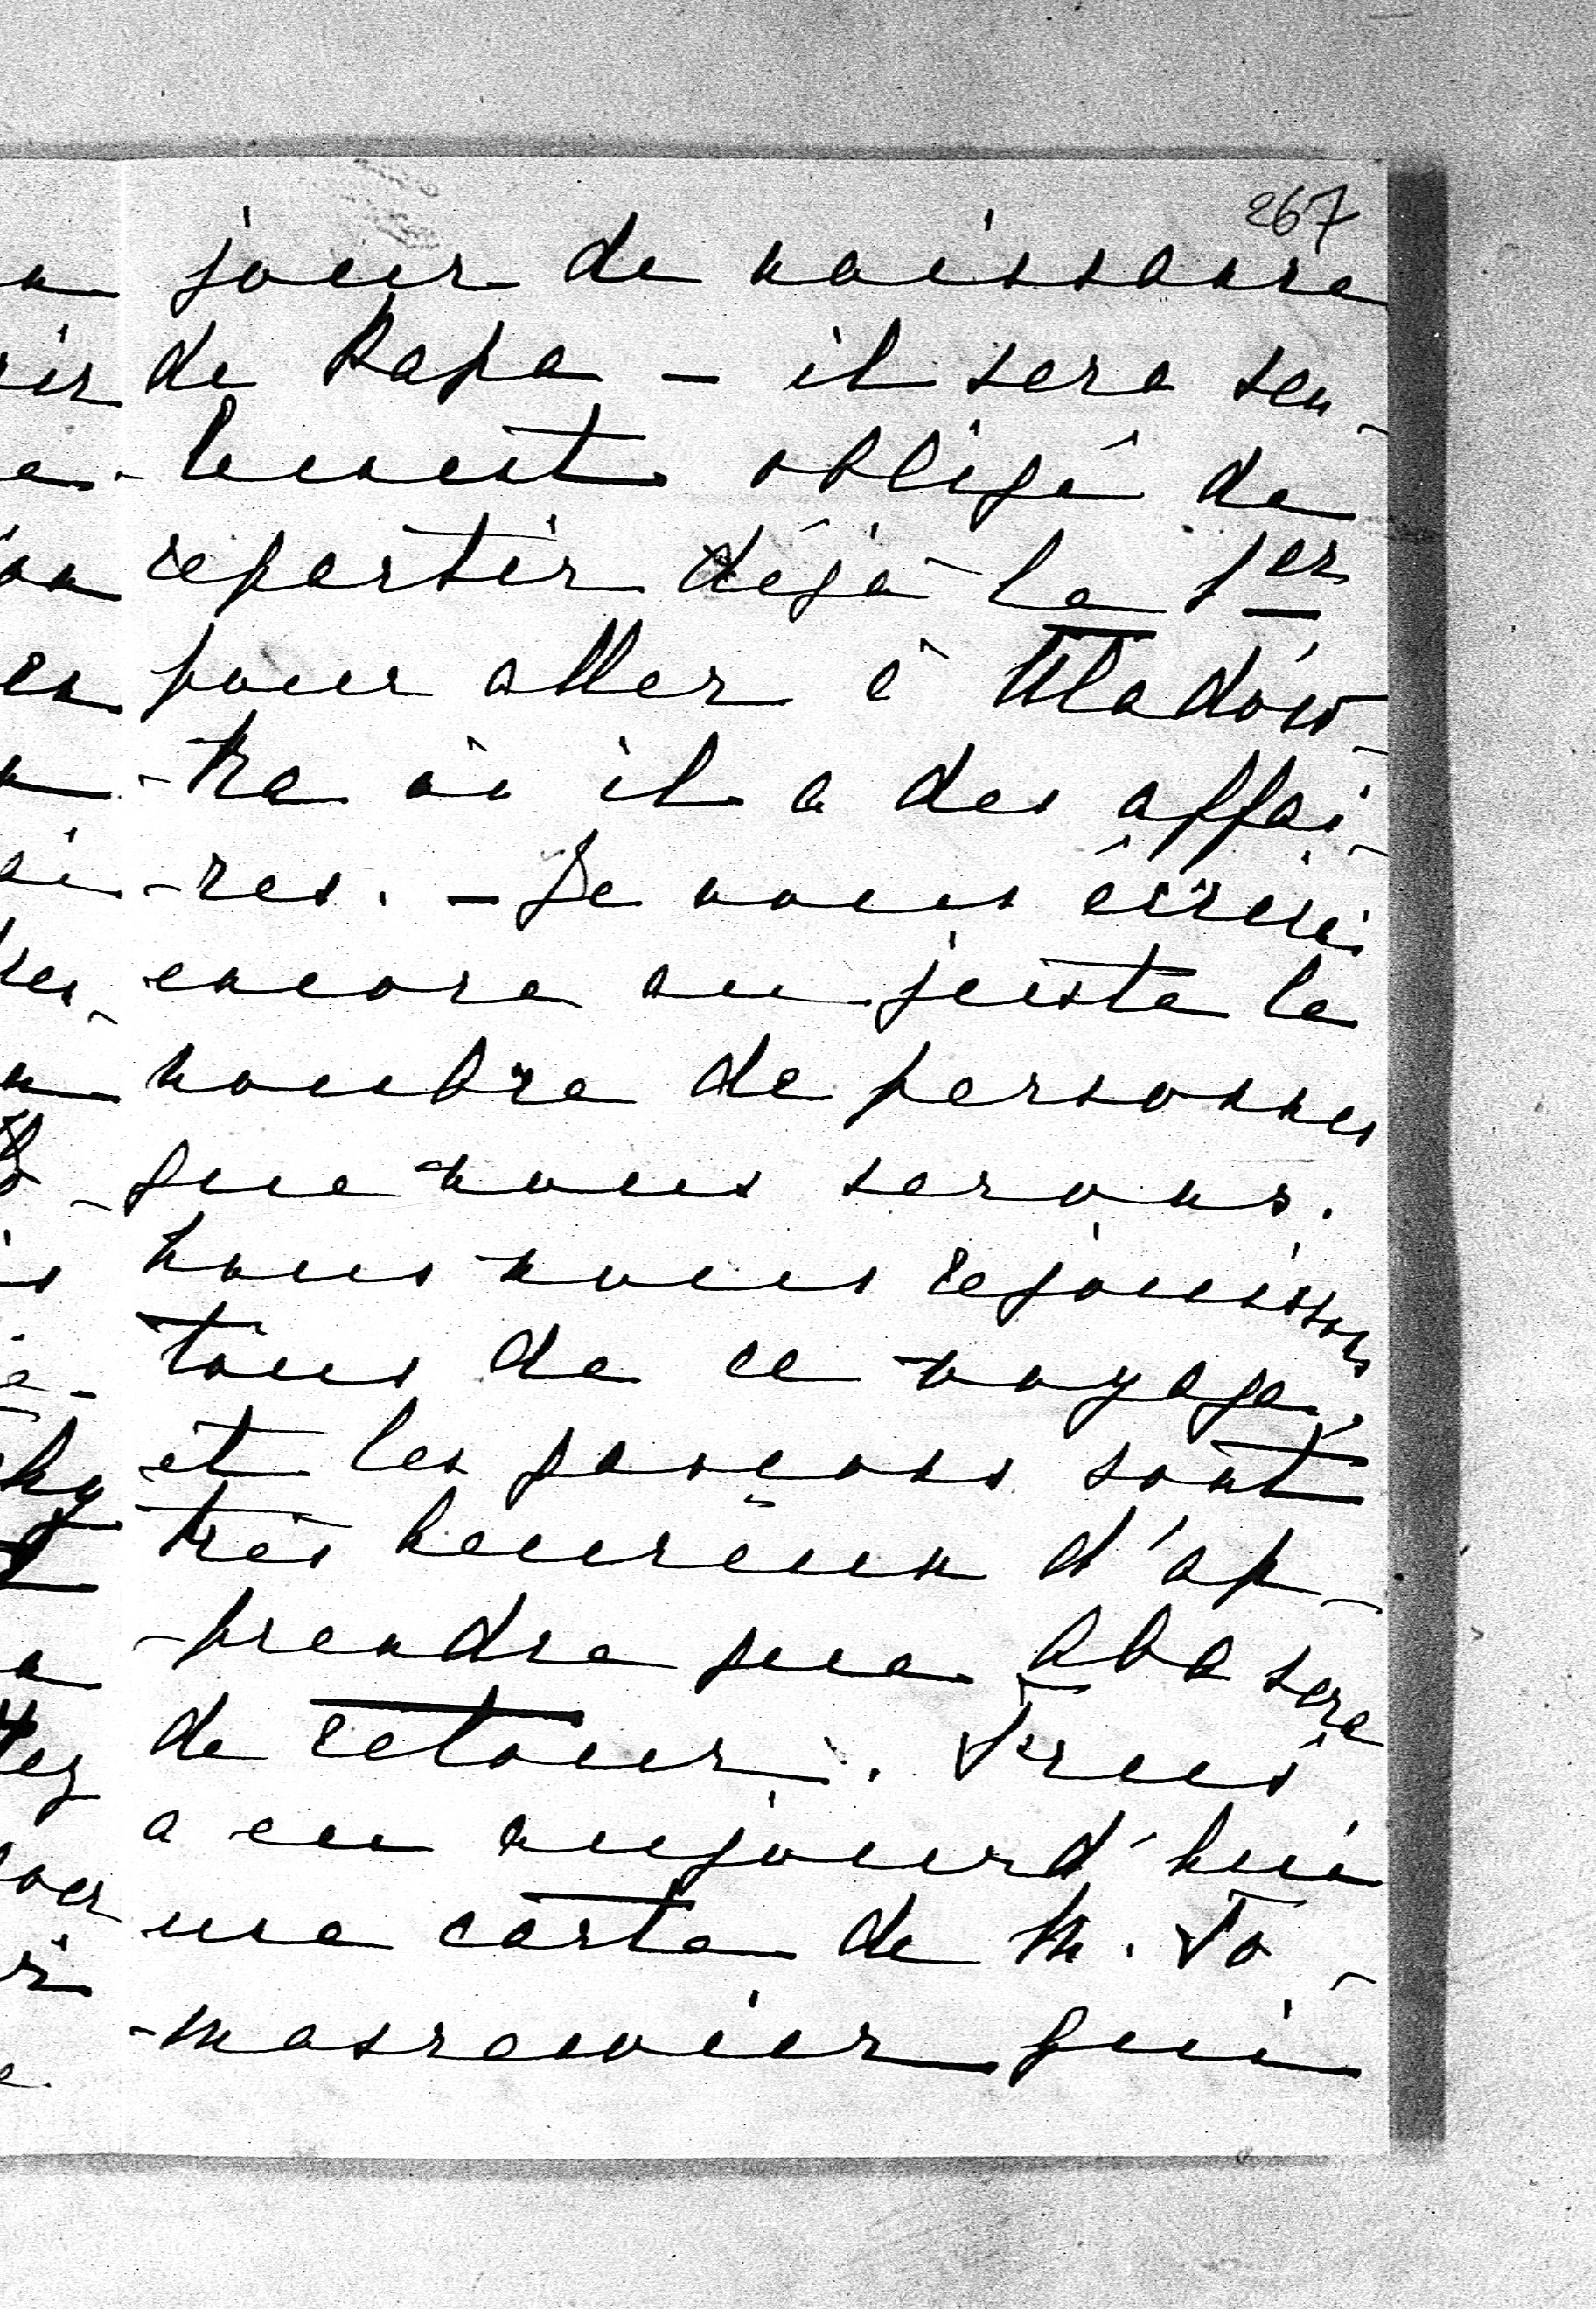 267
jour de naissance
de Papa – il sera seu-
-lement obligé de
repartir déjà le 1er
pour aller à Uladow-
-ka où il a des affai-
-res. – Je vous écrirai
encore au juste le
nombre de personnes
que nous serons.
Nous nous rejouissons
tous de ce voyage,
et les garçons sont
très heureux d'ap-
-prendre que Aba sera
de retour. Truś
a eu aujourd'hui
une carte de M. To-